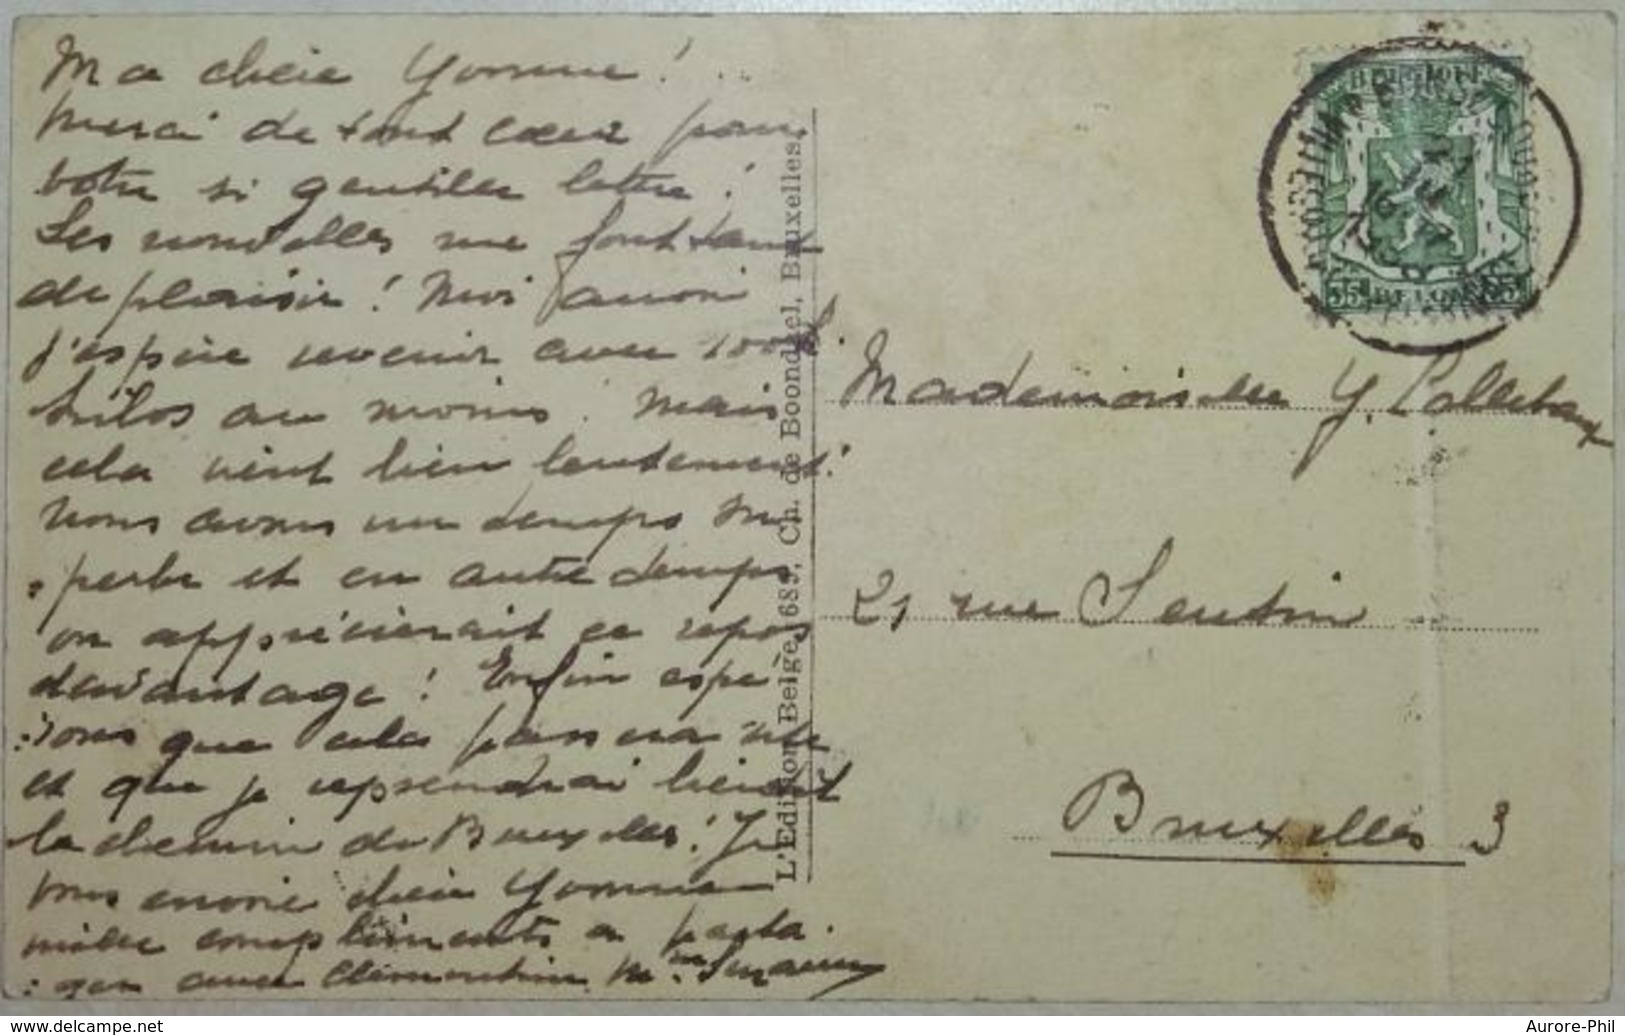 Ma chère Yvonne !
Merci de tout cœur pour
votre si gentille lettre !
Les nouvelles me font tant
de plaisir ! Moi aussi
j'espère revenir avec 100
kilos au moins. Mais
cela vient bien lentement !
Nous avons un temps su
perbe et en autre temps
on apprécierait ce repos
davantage ! Enfin espé
rons que cela passera vite
et que je reprendrai bientôt
le chemin de Bruxelles ! Je
vous envoie chère Yvonne
mille compliments à parta
ger avec Clémentine. Mme
L'Edition Belge, 689, Ch. de Boondael, Bruxelles.
BELGIQUE
35 BELGIE 35
Mademoiselle Y. Collebaux
21 rue Seutin
Bruxelles 3
delcampe.net
Aurore-Phil